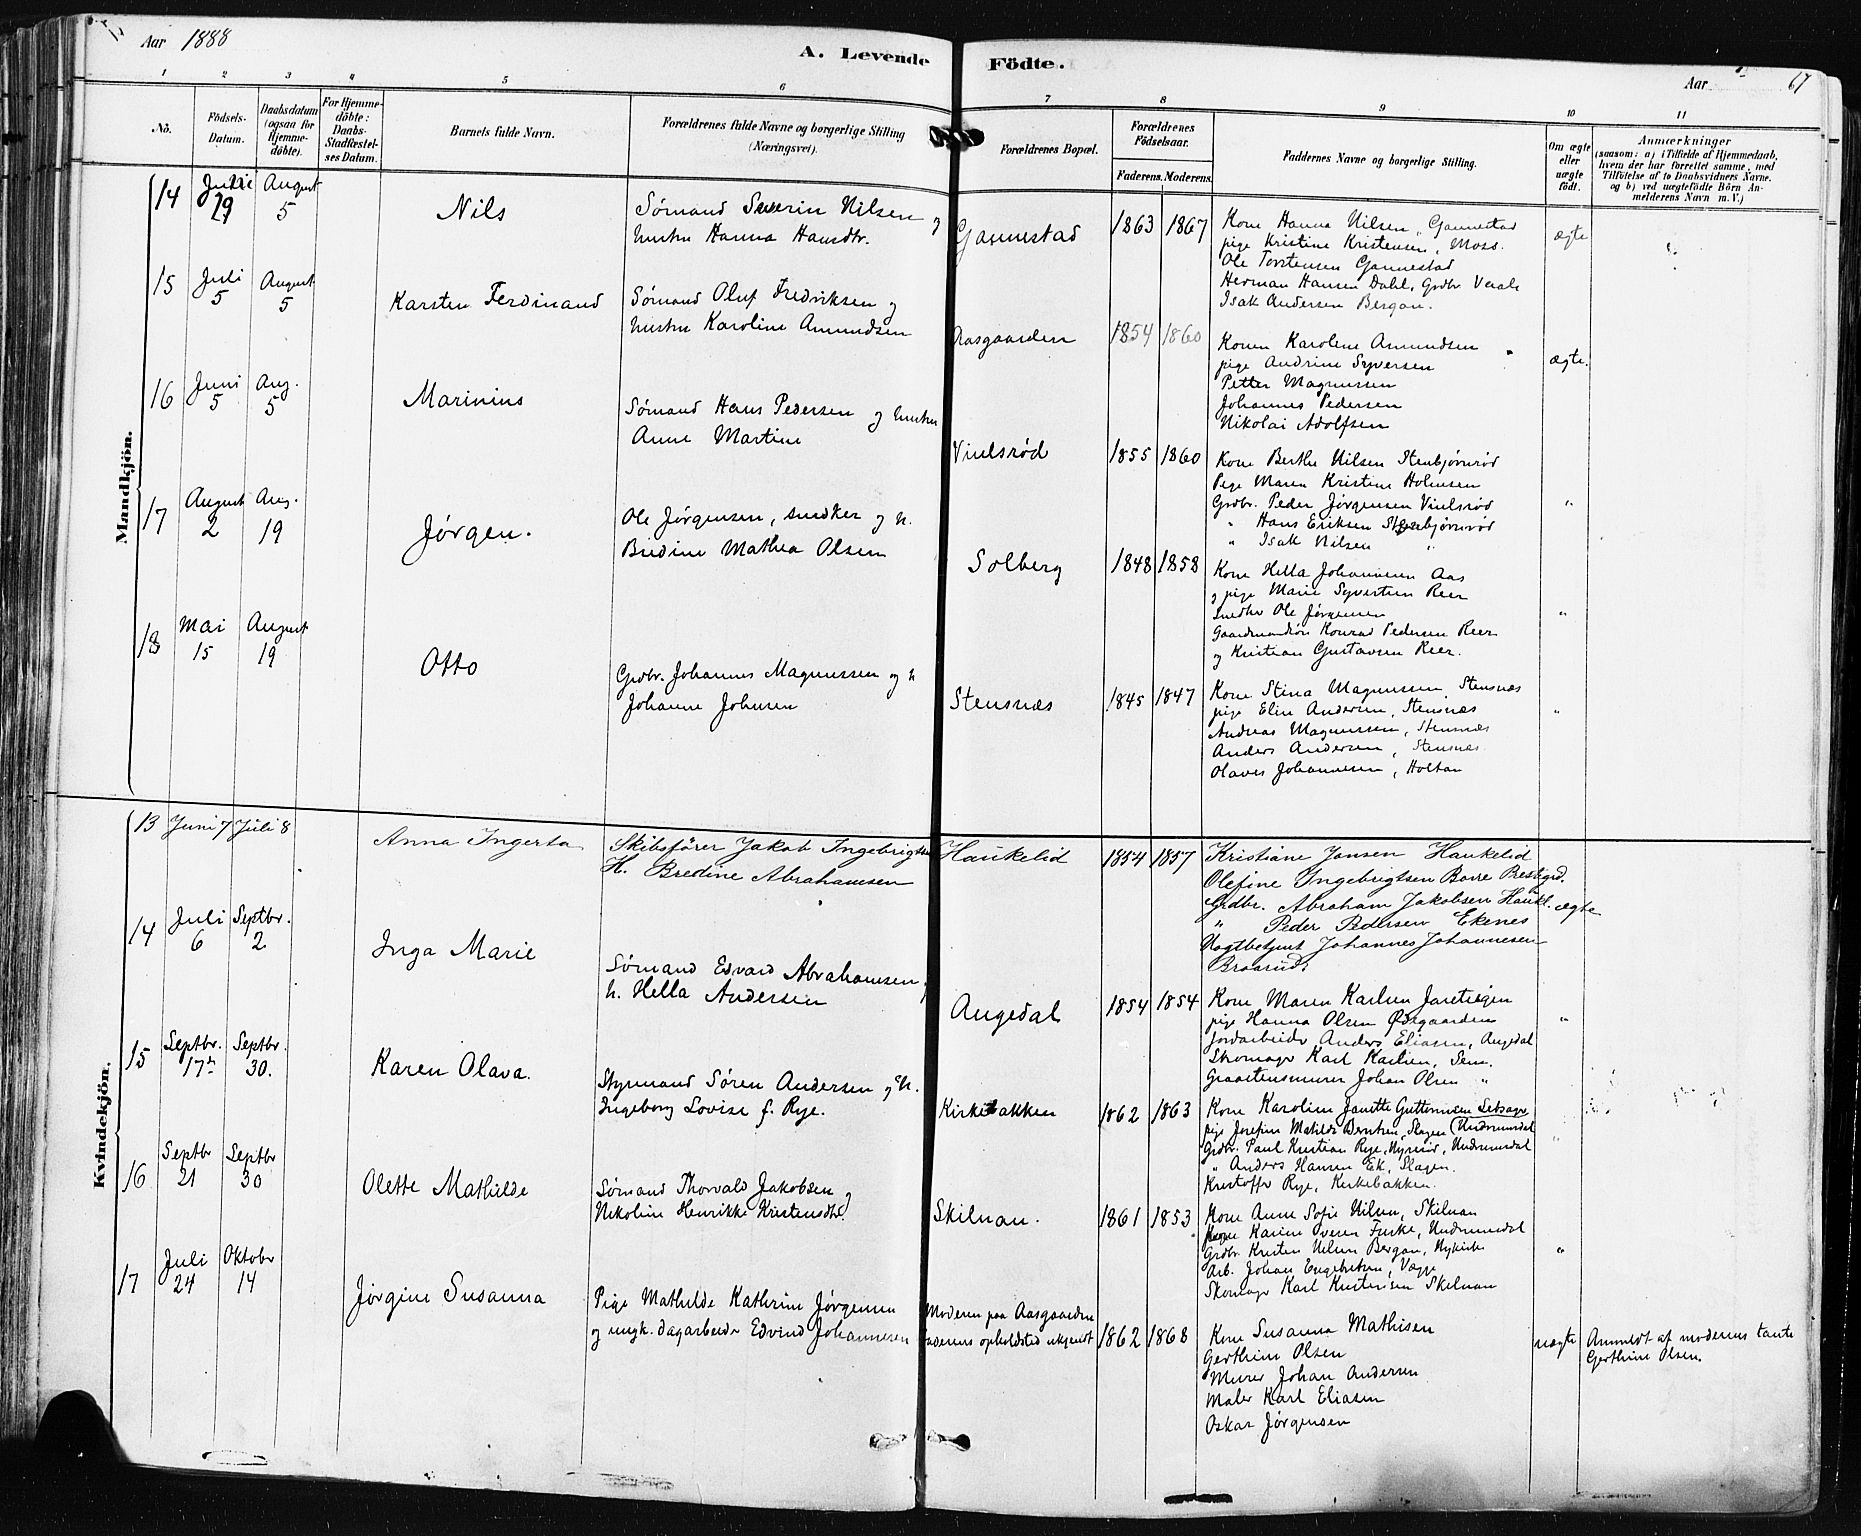 Aar 1888
A. Levende Födte.
Aar 67
1 2 3 4 5 6 7 8 9 10 11
No.
Födsels-Datum.
Daabsdatum (ogsaa for Hjemme-döbte).
For Hjemme-döbte: Daabs-Stadfæstel-ses Datum.
Barnets fulde Navn.
Forældrenes fulde Navne og borgerlige Stilling (Næringsvei).
Forældrenes Bopæl.
Forældrenes Födselsaar.
Faderens. Moderens.
Faddernes Navne og borgerlige Stilling.
Om ægte eller uægte födt.
Anmærkninger
(saasom: a) i Tilfælde af Hjemmedaab,
hvem der har forrettet samme, med
Tilföielse af to Daabsvidners Navne,
og b) ved uægtefödte Börn An-
melderens Navn m. V.)
Mandkjön.
14 29 August 5
Nils
Sømand Severin Nilsen og
hustru Hanna Hansdtr.
Gannestad 1863 1867
Kone Hanna Nilsen, Gannestad
pige Kristine Kristensen, Moss.
Ole Torstensen Gannestad
Herman Hansen Dahl, Grdbr Vaale
Isak Andersen Bergan.
ægte
15 Juli 5 August 5
Karsten Ferdinand
Sømand Oluf Fredriksen og
hustru Karoline Amundsen
Aasgaarden 1854 1860
Konen Karolene Amundsen
pige Andrine Syversen
Petter Magnussen
Johannes Pedersen
Nikolai Adolfsen
ægte.
16 Juni 5 Aug. 5
Marinius
Sømand Hans Pedersen og hustru
Anne Martine
Vinlsrød 1855 1860
Kone Berthe Nilsen Stenbjørnrød
Pige Maren Kristine Holmsen
Grdbr. Peder Jørgensen Vinlsrød
" Hans Eriksen Stenbjørnrød
" Isak Nilsen "
"
17 August 2 Aug. 19
Jørgen.
Ole Jørgensen, snedker og h.
Bredine Mathea Olsen
Solberg 1848 1858
Kone Hella Johannesen Aas
og pige Marie Syvertsen Reer
Snedker Ole Jørgensen
Gaardmandsøn Konrad Pedersen Reer
og Kristian Gustavsen Reer.
"
18 Mai 15 August 19
Otto
Grdbr. Johannes Magnussen og h
Johanne Johnsen
Stensnæs 1845 1847
Kone Stina Magnussen, Stensnæs
pige Elin Andersen, Stensnæs
Andreas Magnussen, Stensnæs
Anders Andersen, Stensnæs
Olaves Johannesen, Holtan
"
Kvindekjön.
13 Juni 7 Juli 8
Anna Ingerta
Skibsfører Jakob Ingebrigtsen
H. Bredine Abrahamsen
Haukelid 1854 1857
Kristiane Jansen Haukelid
Olefine Ingebrigtsen Borre Prestegrd.
Grdbr. Abraham Jakobsen Haukl.
" Peder Pedersen Ekenes
Vogtbetjent Johannes Johannesen
Braarud.
ægte
14 Juli 6 Septbr. 2
Inga Marie
Sømand Edvard Abrahamsen,
h. Hella Andersen
Augedal 1854 1854
Kone Maren Karlsen Jareteigen
pige Hanna Olsen Østgaarden
Jordarbeider Anders Eliasen, Augedal
Skomager Karl Karlsen, Sem.
Graastensmurer Johan Olsen "
"
15 Septbr. 17de Septbr. 30.
Karen Olava.
Styrmand Søren Andersen og h.
Ingeborg Lovise f. Rye.
Kirkebakken 1862 1863
Kone Karoline Janette Guttormsen
pige Josefine Matilde Berntsen, Slagen (Undrumsdal
Grdbr. Paul Kristian Rye, Undrumsdal
" Anders Hansen Ek, Slagen.
Kristoffer Rye, Kirkebakken.
"
16 Septbr 21 Septbr 30
Olette Mathilde
Sømand Thorvald Jakobsen og
Nikoline Henrikke Kristensdtr.
Skilnan. 1861 1853
Kone Anne Sofie Nilsen, Skilnan
Karine Iversen Furke, Undrumsdal
Grdbr Kristen Nilsen Bergan, Nykirke
Arb. Johan Engebretsen, Vegge
Skomager Karl Kristensen Skilnan
"
17 Juli 24 Oktobr 14
Jørgine Susanna
Pige Mathilde Kathrine Jørgensen
og ungk. dagarbeider Edvind Johannesen
Moderen paa Aasgaarden
faderens opholdsted ukjendt
1862 1868
Kone Susanna Mathisen
Gerthine Olsen
Murer Johan Andersen
Maler Karl Eliasen
Oskar Jørgensen
uægte
Anmeldt af moderens tante
Gerthine Olsen.